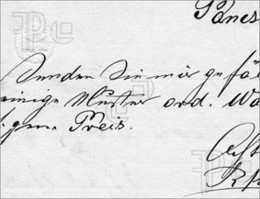 Pancs
Senden Sie mir gefäl
einige Muster ord. Wa
igem Preis.
Acht